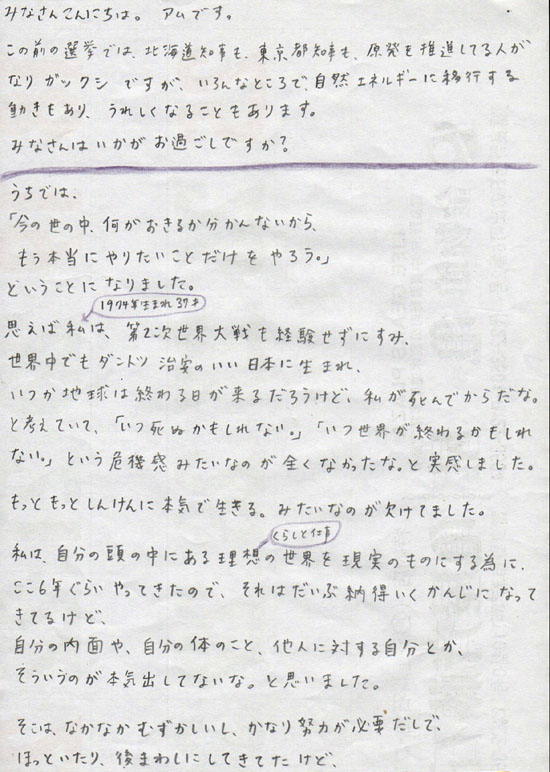 みなさんこんにちは。アムです。
この前の選挙では、北海道知事も、東京都知事も、原発を推進してる人が
なりガックシですが、いろんなところで、自然エネルギーに移行する
動きもあり、うれしくなることもあります。
みなさんはいかがお過ごしですか?
うちでは、
「今の世の中、何がおきるか分かんないから、
もう本当にやりたいことだけをやろう。」
ということになりました。
1974年生まれ37才
思えば私は、第2次世界大戦も経験せずにすみ、
世界中でもダントツ治安のいい日本に生まれ、
いつか地球は終わる日が来るだろうけど、私が死んでからだな。
と考えていて、「いつ死ぬかもしれない。」「いつ世界が終わるかもしれ
ない。」という危機感みたいなのが全くなかったな。と実感しました。
もっともっとしんけんに本気で生きる。みたいなのが欠けてました。
くらしと仕事
私は、自分の頭の中にある理想の世界を現実のものにする為に、
ここ6年ぐらいやってきたので、それはだいぶ納得いくかんじになって
きてるけど、
自分の内面や、自分の体のこと、他人に対する自分とか、
そういうのが本気出してないな。と思いました。
そこは、なかなかむずかしいし、かなり努力が必要だしで、
ほっといたり、後まわしにしてきてたけど、